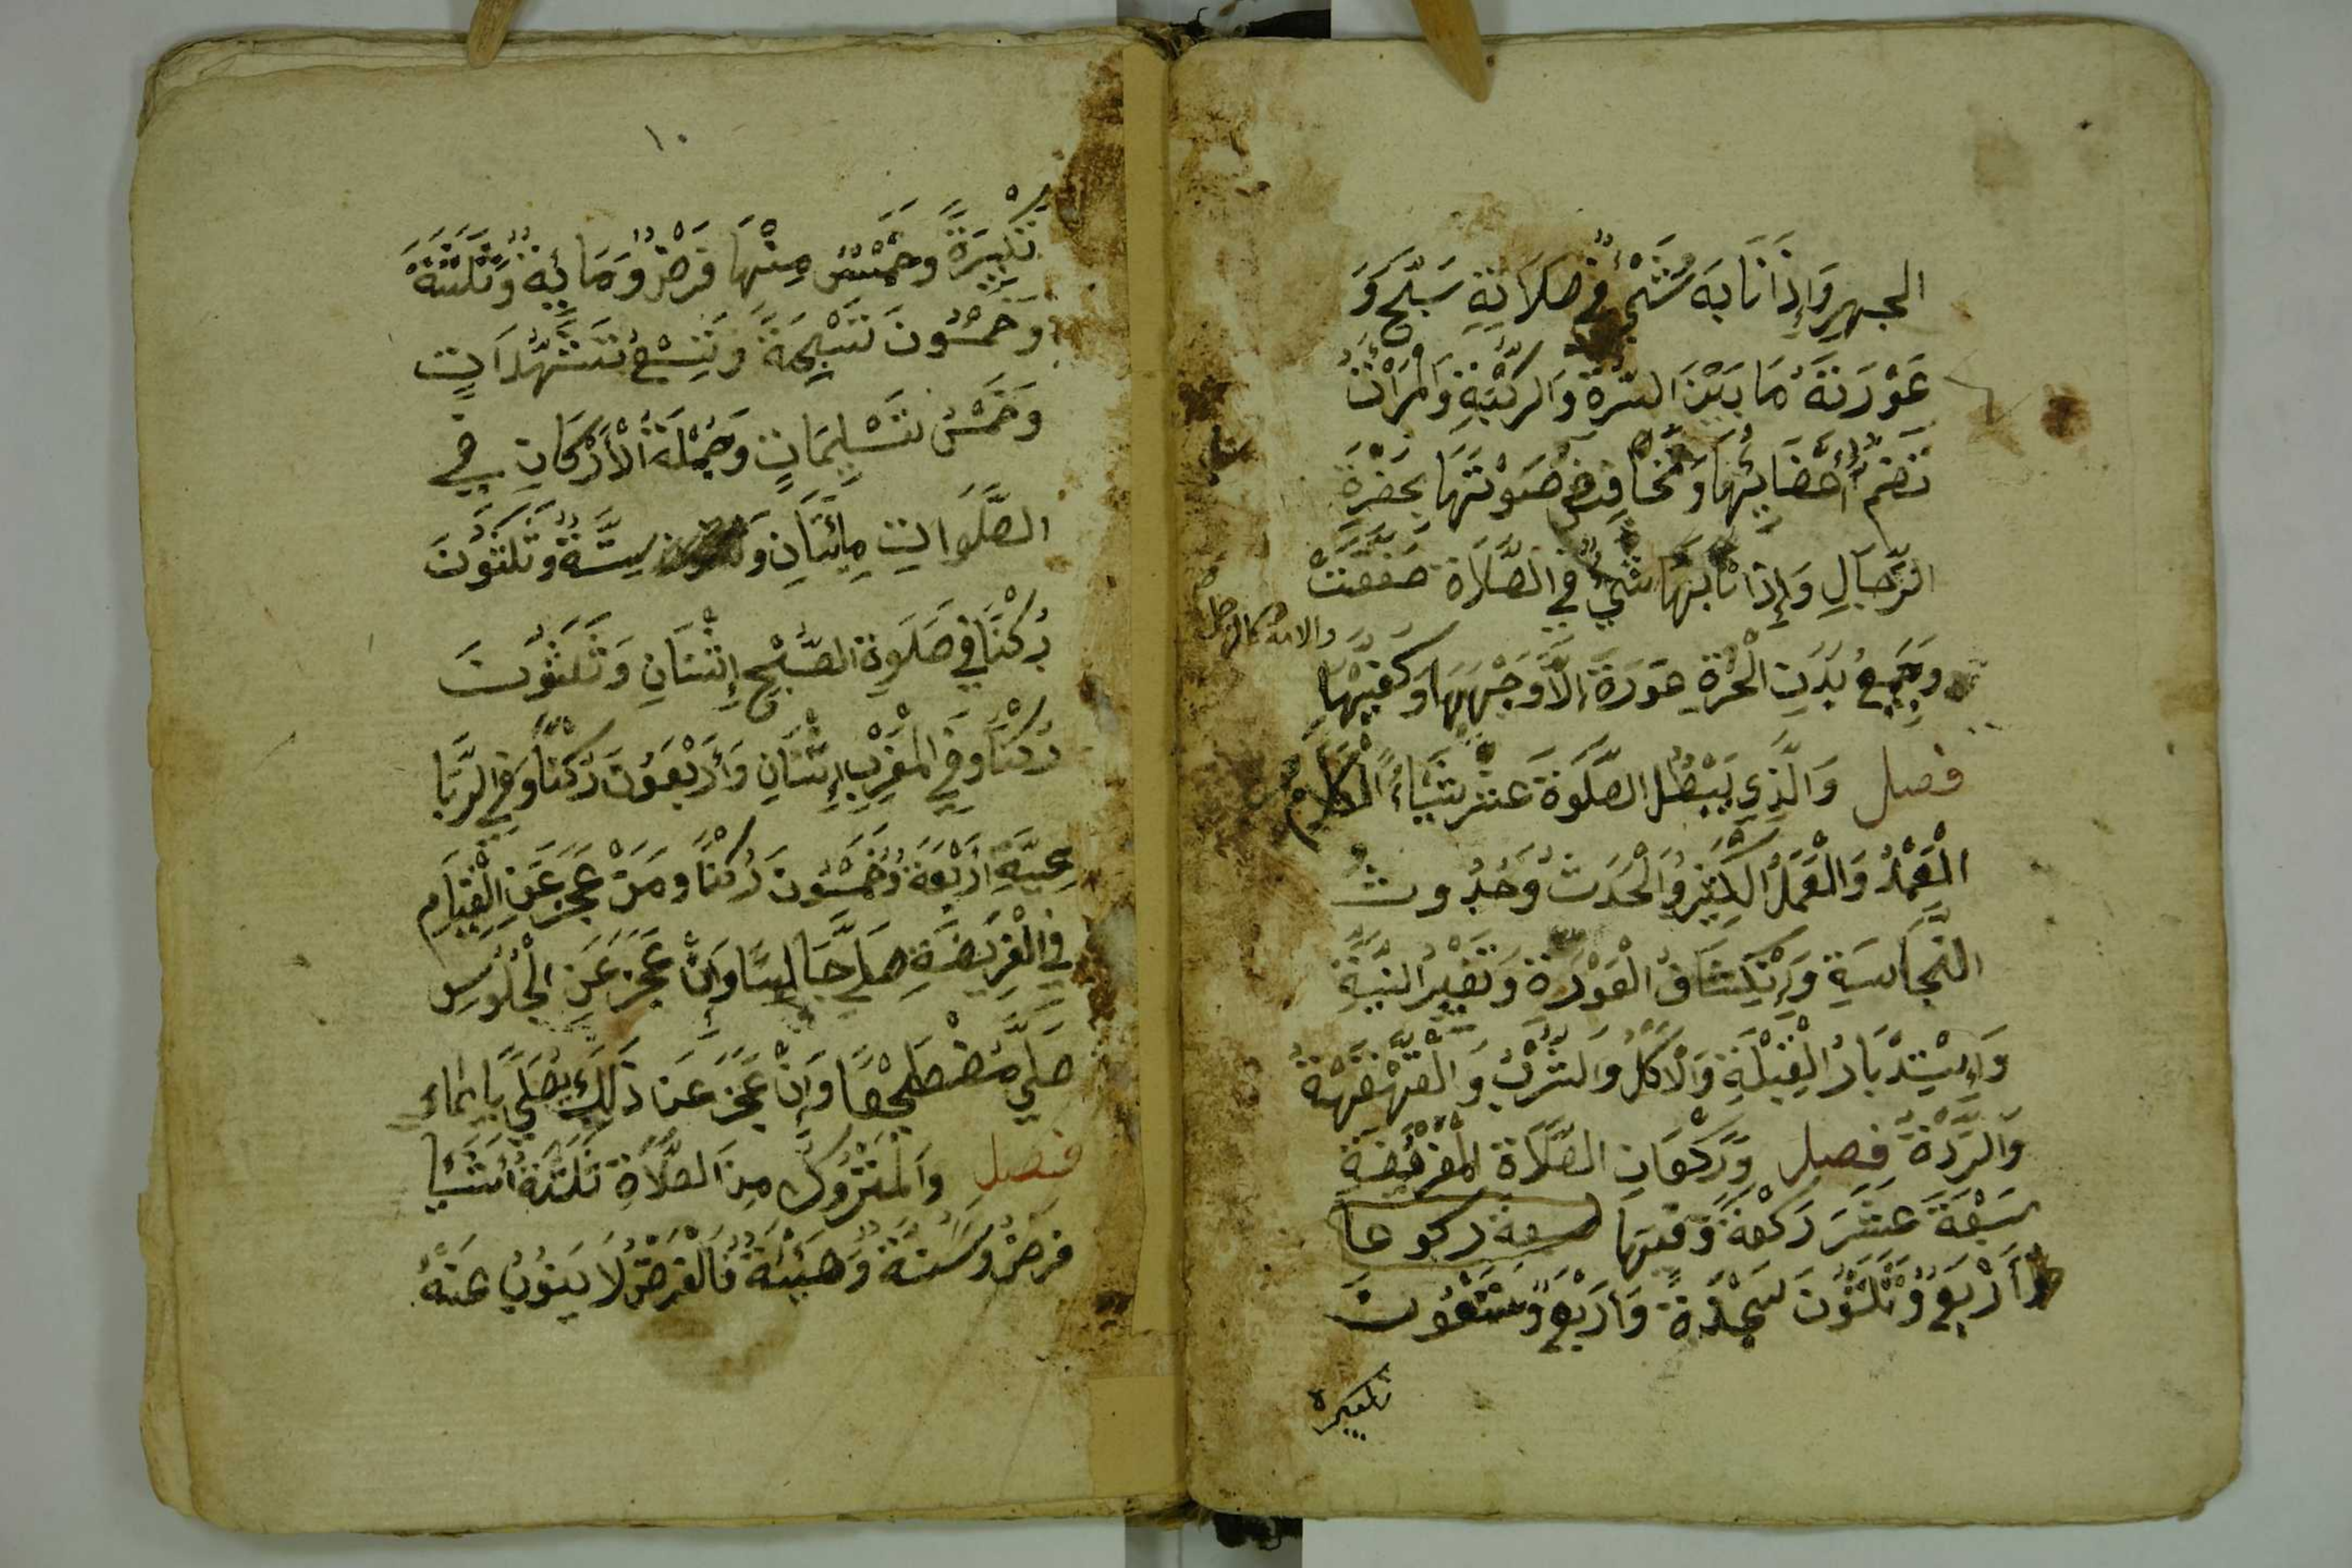 الجهر وَإِذَا نَابَهُ شَيْءٌ فِي صَلَاتِهِ سَبَّحَ وَ
عَوْرَتَهُ مَا بَيْنَ السُّرَّةِ وَالرُّكْبَةِ وَالْمَرْأَةُ
تَضُمُّ أَعْضَائِهَا وَتُخَافِضُ صَوْتَهَا بِحَضْرَةِ
الرِّجَالِ وَإِذَا نَابَهَا شَيْءٌ فِي الصَّلَاةِ صَفَّقَتْ
والامة كالرجل
وَجَمِيعُ بَدَنِ الْحُرَّةِ عَوْرَةٌ إِلَّا وَجْهَهَا وَكَفَّيْهَا
فصل وَالَّذِي يَبْطُلُ الصَّلَوةَ عَشَرَ شَيْئًا الْكَلَامُ
الْعَمْدُ وَالْعَمَلُ الْكَثِيرُ وَالْحَدَثُ وَحُدُوثُ
النَّجَاسَةِ وَإِنْكِشَافُ الْعَوْرَةِ وَتَغْيِيرُ النِّيَّةِ
وَاسْتِدْبَارُ الْقِبْلَةِ وَالْأَكْلُ وَالشُّرْبُ وَالْقَهْقَهَةُ
وَالرِّدَّةُ فصل وَرَكْعَاتِ الصَّلَاةِ الْمَفْرُيضَةِ
سَبْعَةَ عَشَرَ رَكْعَةً وَفيها سبعة ركوعا
أَرْبَعٌ وَثَلَثُونَ سَجْدَةً وَأَرْبَعٌ وَتِسْعُونَ
تكبيرة
١٠
تَكْبِيرَةً وَخَمْسٌ مِنْهَا فَرْضٌ وَمَائِةٌ وَثَلَثَةٌ
وَخَمْسُونَ تَسْبِيحَةً وَتِسْعُ تَشَهُّدَاتٍ
وَخَمْسُ تَسْلِيمَاتٍ وَجُمْلَةُ الْأَرْكَانِ فِي
الصَّلَوَاتِ مِائَتَانِ وَ سِتَّةٌ وَثَلَثُونَ
رُكْنًا فِي صَلَوةِ الصُّبْحِ إِثْنَانِ وَثَلَثُونَ
رُكْنًا وَفِي الْمَغْرِبِ إِثْنَانِ وَأَرْبَعُونَ رُكْنًا وَفِي الرُّبَا
عِيَّةِ أَرْبَعَةٌ وَخَمْسُونَ رُكْنًا وَمَنْ عَجَزَ عَنِ الْقِيَامِ
فِي الْفَرِيضَةِ صَلَّى جَالِسًا وَإِنْ عَجَزَ عَنِ الْجُلُوسِ
صَلَّى مُضْطَجِعًا وَإِنْ عَجَزَ عَنْ ذَلِكَ يُصَلِّي بِإِيمَاءِ
فصل وَالْمَتْرُوكُ مِنَ الصَّلَاةِ ثَلَثَةُ أَشْيَا
فَرْضٌ وَسُنَّةٌ وَهَيْئَةٌ فَالْفَرْضُ لَا يَنُوبُ عَنْهُ